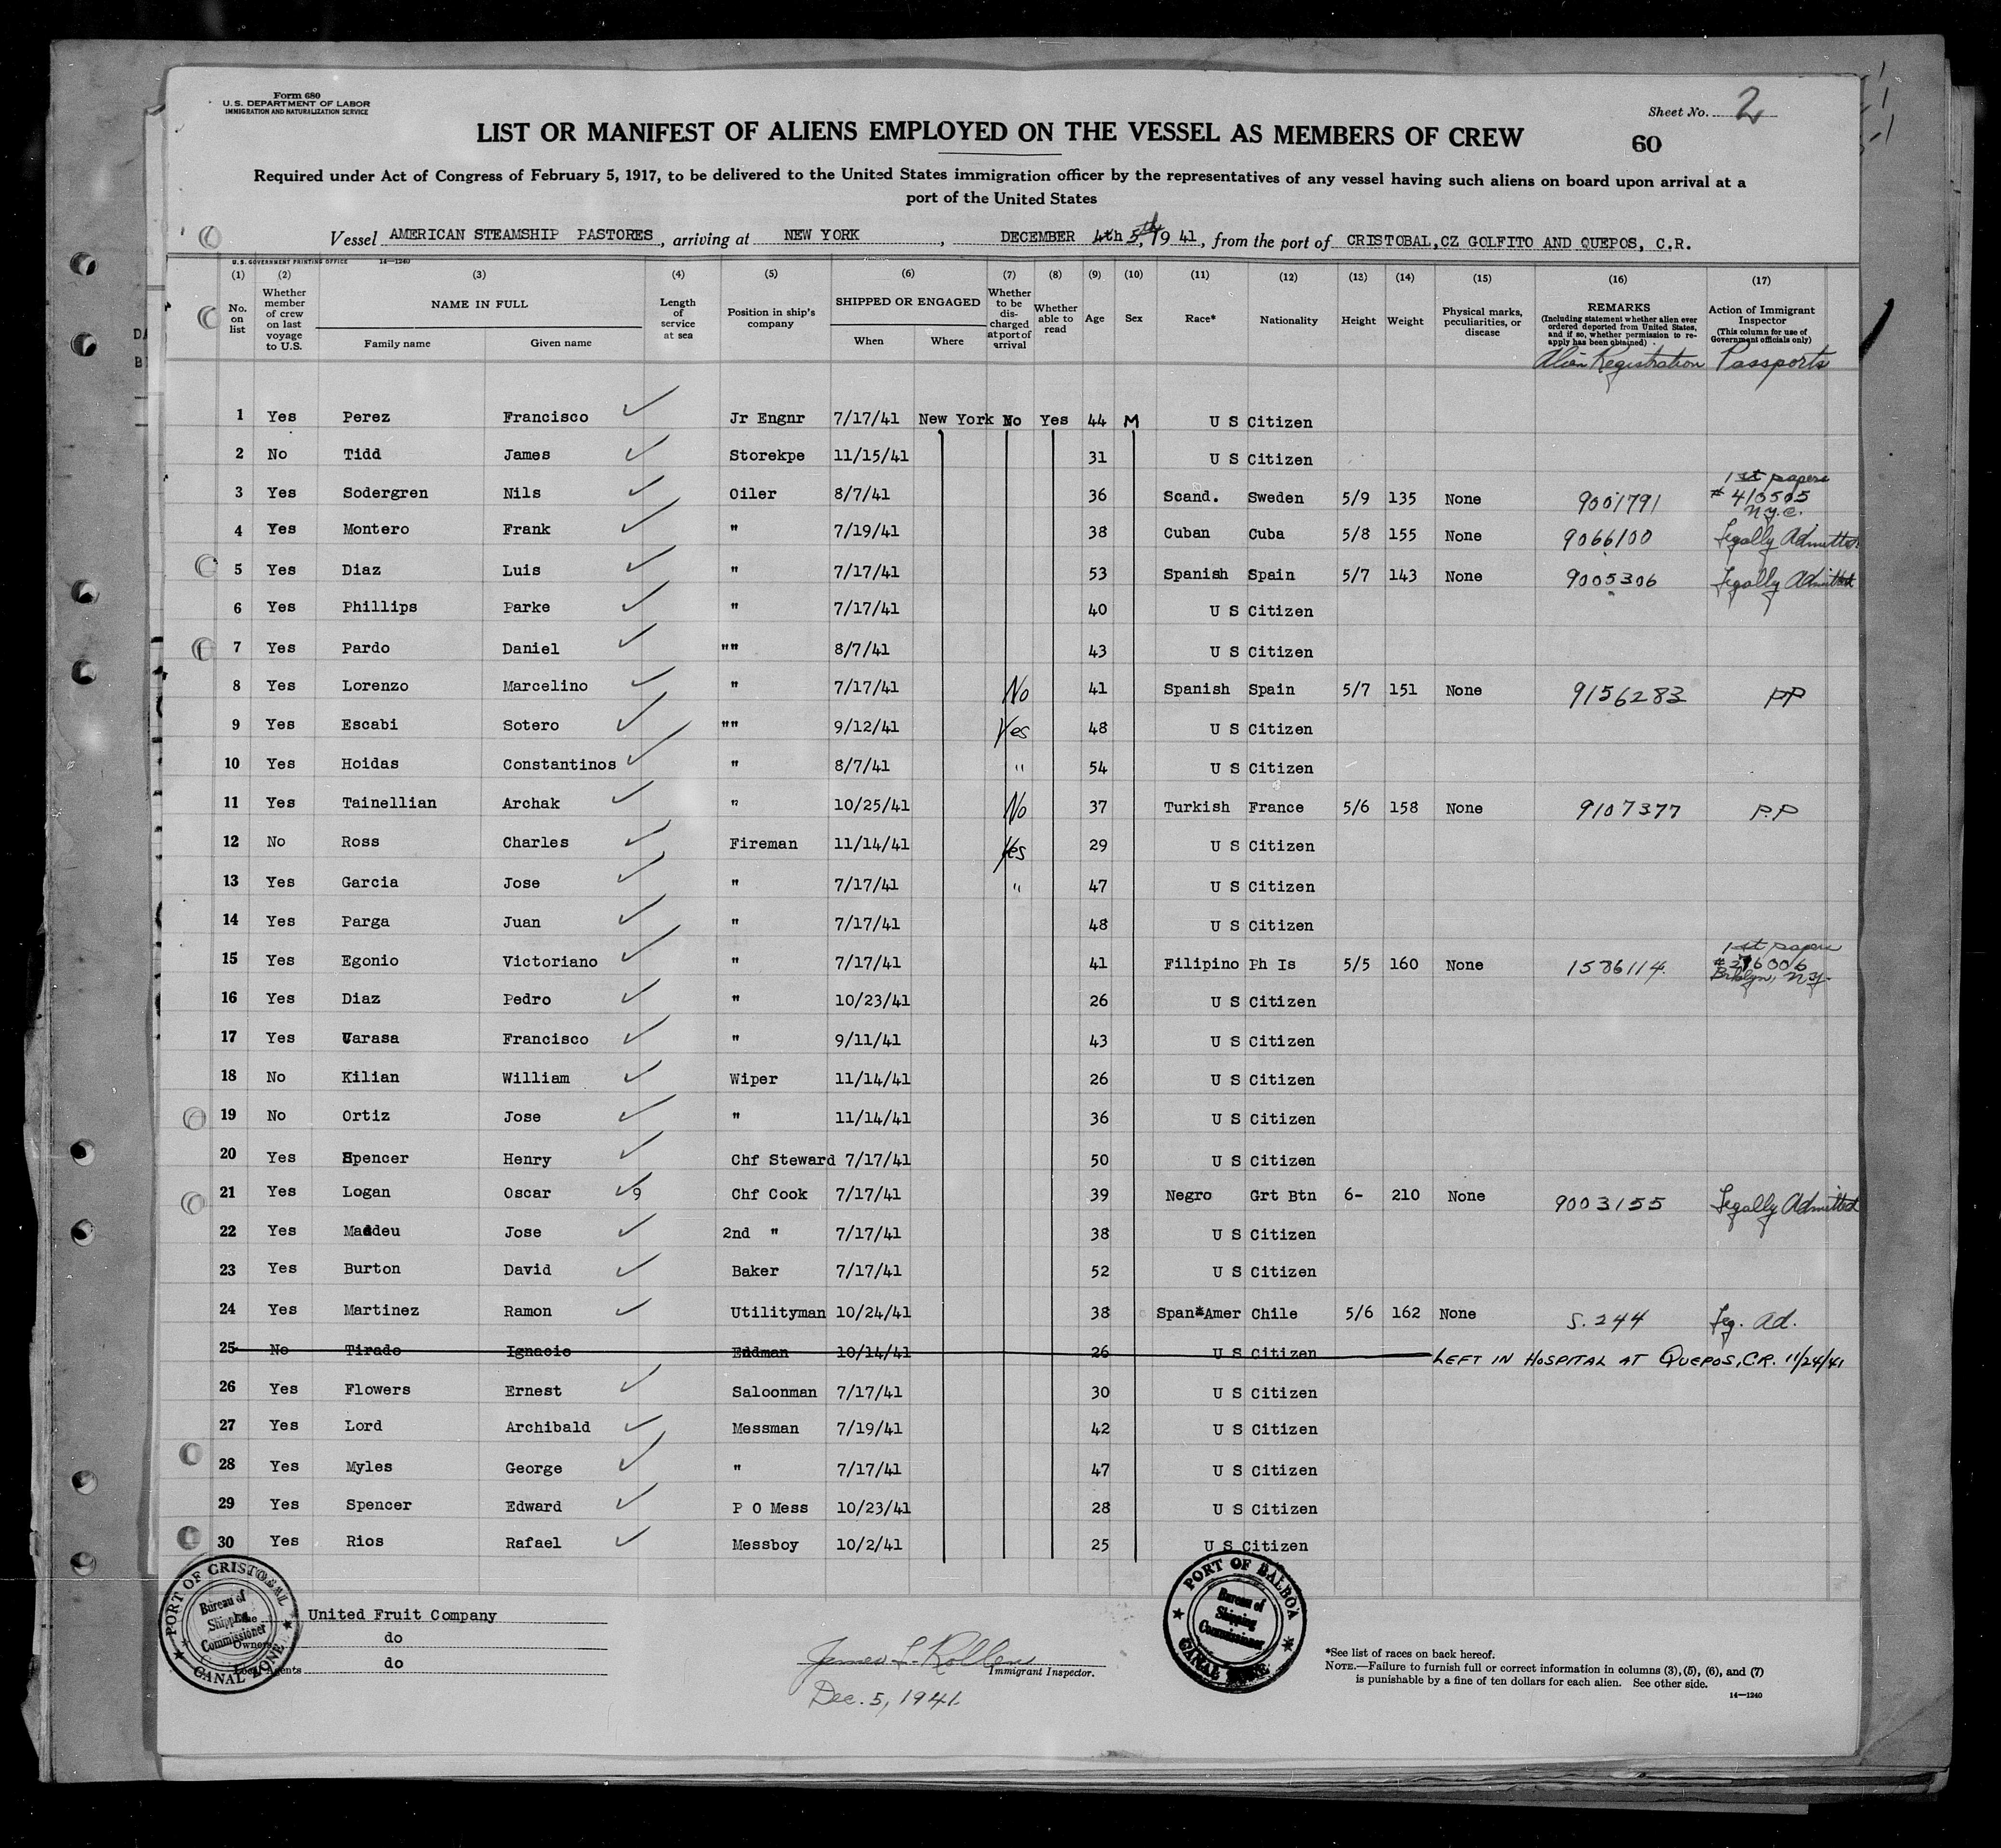 Form 680
U.S. DEPARTMENT OF LABOR
IMMIGRATION AND NATURALIZATION SERVICE
Sheet No. 2
LIST OR MANIFEST OF ALIENS EMPLOYED ON THE VESSEL AS MEMBERS OF CREW
60
Required under Act of Congress of February 5, 1917, to be delivered to the United States immigration officer by the representatives of any vessel having such aliens on board upon arrival at a
port of the United States
Vessel AMERICAN STEAMSHIP PASTORES, arriving at NEW YORK, DECEMBER 4th 5th, 1941, from the port of CRISTOBAL,CZ GOLFITO AND QUEPOS, C.R.
U.S. GOVERNMENT PRINTING OFFICE 14—1240
(1) (2) (3) (4) (5) (6) (7) (8) (9) (10) (11) (12) (13) (14) (15) (16) (17)
No. on list
Whether member of crew on last voyage to U.S.
NAME IN FULL
Family name Given name
Length of service at sea
Position in ship's company
SHIPPED OR ENGAGED
When Where
Whether to be discharged at port of arrival
Whether able to read
Age
Sex
Race*
Nationality
Height
Weight
Physical marks, peculiarities, or disease
REMARKS
(Including statement whether alien ever ordered deported from United States, and if so, whether permission to reapply has been obtained)
Action of Immigrant Inspector
(This column for use of Government officials only)
Alien Registration Passports
1 Yes Perez Francisco Jr Engnr 7/17/41 New York No Yes 44 M U S Citizen
2 No Tidd James Storekpe 11/15/41 31 U S Citizen
3 Yes Sodergren Nils Oiler 8/7/41 36 Scand. Sweden 5/9 135 None 9001791 1st papers # 410505 N.Y.C.
4 Yes Montero Frank " 7/19/41 38 Cuban Cuba 5/8 155 None 9066100 Legally Admitted
5 Yes Diaz Luis " 7/17/41 53 Spanish Spain 5/7 143 None 9005306 Legally Admitted
6 Yes Phillips Parke " 7/17/41 40 U S Citizen
7 Yes Pardo Daniel "" 8/7/41 43 U S Citizen
8 Yes Lorenzo Marcelino " 7/17/41 No 41 Spanish Spain 5/7 151 None 9156283 PP
9 Yes Escabi Sotero "" 9/12/41 Yes 48 U S Citizen
10 Yes Hoidas Constantinos " 8/7/41 " 54 U S Citizen
11 Yes Tainellian Archak " 10/25/41 No 37 Turkish France 5/6 158 None 9107377 P.P
12 No Ross Charles Fireman 11/14/41 Yes 29 U S Citizen
13 Yes Garcia Jose " 7/17/41 " 47 U S Citizen
14 Yes Parga Juan " 7/17/41 48 U S Citizen
15 Yes Egonio Victoriano " 7/17/41 41 Filipino Ph Is 5/5 160 None 1586114 1st papers # 276006 Brklyn, N.Y.
16 Yes Diaz Pedro " 10/23/41 26 U S Citizen
17 Yes Varasa Francisco " 9/11/41 43 U S Citizen
18 No Kilian William Wiper 11/14/41 26 U S Citizen
19 No Ortiz Jose " 11/14/41 36 U S Citizen
20 Yes Spencer Henry Chf Steward 7/17/41 50 U S Citizen
21 Yes Logan Oscar 9 Chf Cook 7/17/41 39 Negro Grt Btn 6- 210 None 9003155 Legally Admitted
22 Yes Maddeu Jose 2nd " 7/17/41 38 U S Citizen
23 Yes Burton David Baker 7/17/41 52 U S Citizen
24 Yes Martinez Ramon Utilityman 10/24/41 38 Span*Amer Chile 5/6 162 None S. 244 Leg. Ad.
25 No Tirado Ignacio Eddman 10/14/41 26 U S Citizen LEFT IN HOSPITAL AT QUEPOS, C.R. 11/24/41
26 Yes Flowers Ernest Saloonman 7/17/41 30 U S Citizen
27 Yes Lord Archibald Messman 7/19/41 42 U S Citizen
28 Yes Myles George " 7/17/41 47 U S Citizen
29 Yes Spencer Edward P O Mess 10/23/41 28 U S Citizen
30 Yes Rios Rafael Messboy 10/2/41 25 U S Citizen
PORT OF CRISTOBAL
Bureau of Shipping Commissioner
CANAL ZONE
PORT OF BALBOA
Bureau of Shipping Commissioner
CANAL ZONE
United Fruit Company
Owners do
Local Agents do
James L. Rollens
Immigrant Inspector.
Dec. 5, 1941.
*See list of races on back hereof.
NOTE.—Failure to furnish full or correct information in columns (3), (5), (6), and (7)
is punishable by a fine of ten dollars for each alien. See other side.
14—1240